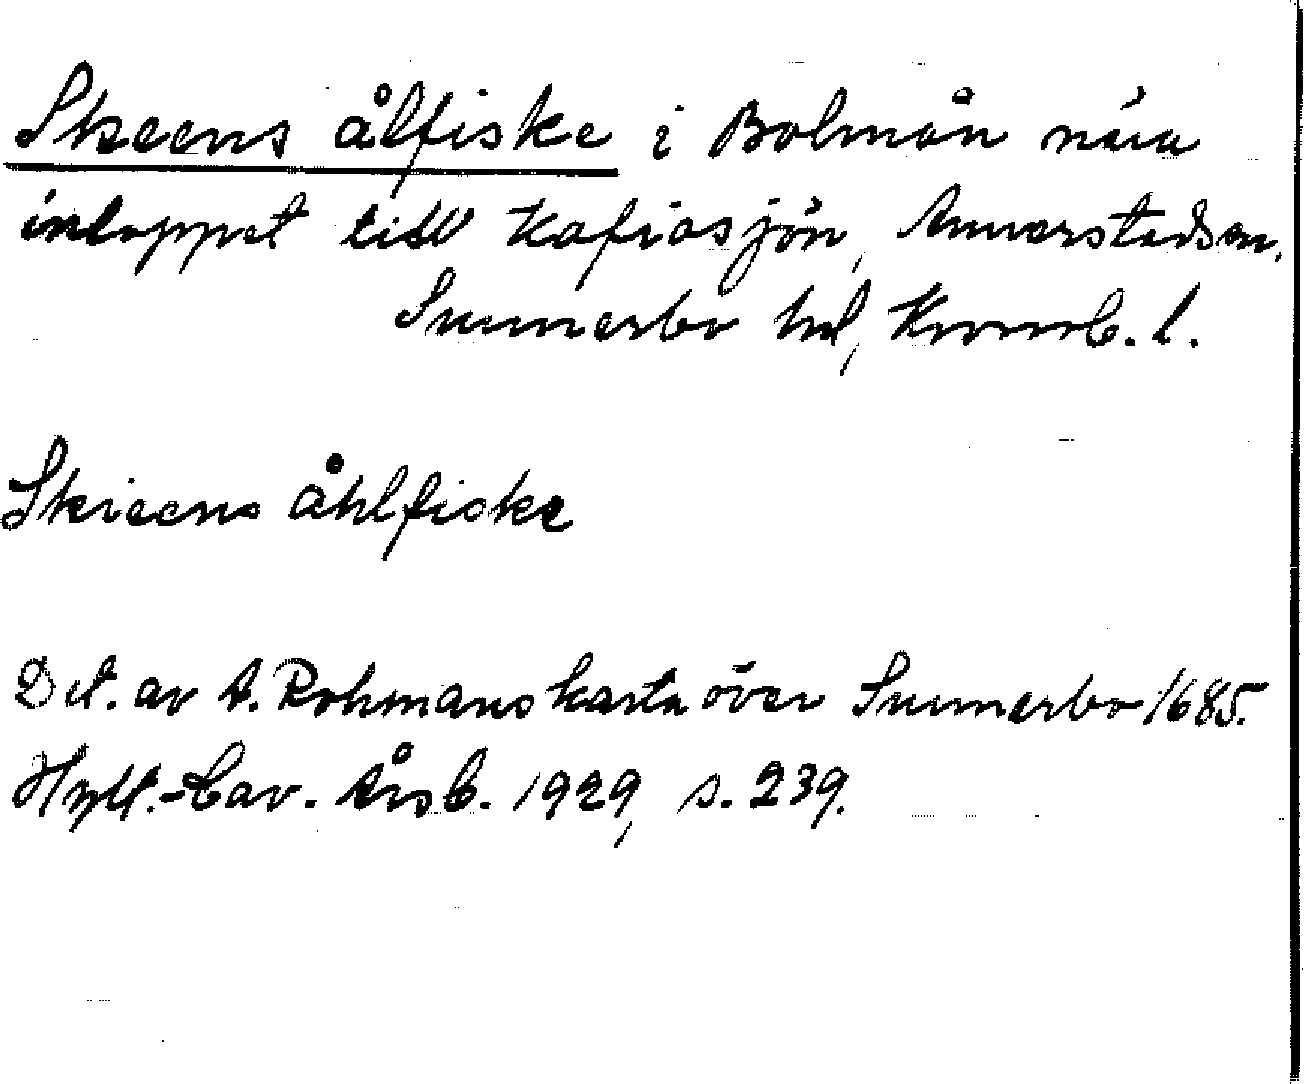 Skeens ålfiske i Bolmån nära
inloppet till Kafjosjön, Annerstads sn.
Sunnerbo hd, Kronob. l.
Skieens åhlfiske
Det. av A. Rohmans karta över Sunnerbo 1685.
Hylt.-Cav. Årsb. 1929, s. 239.